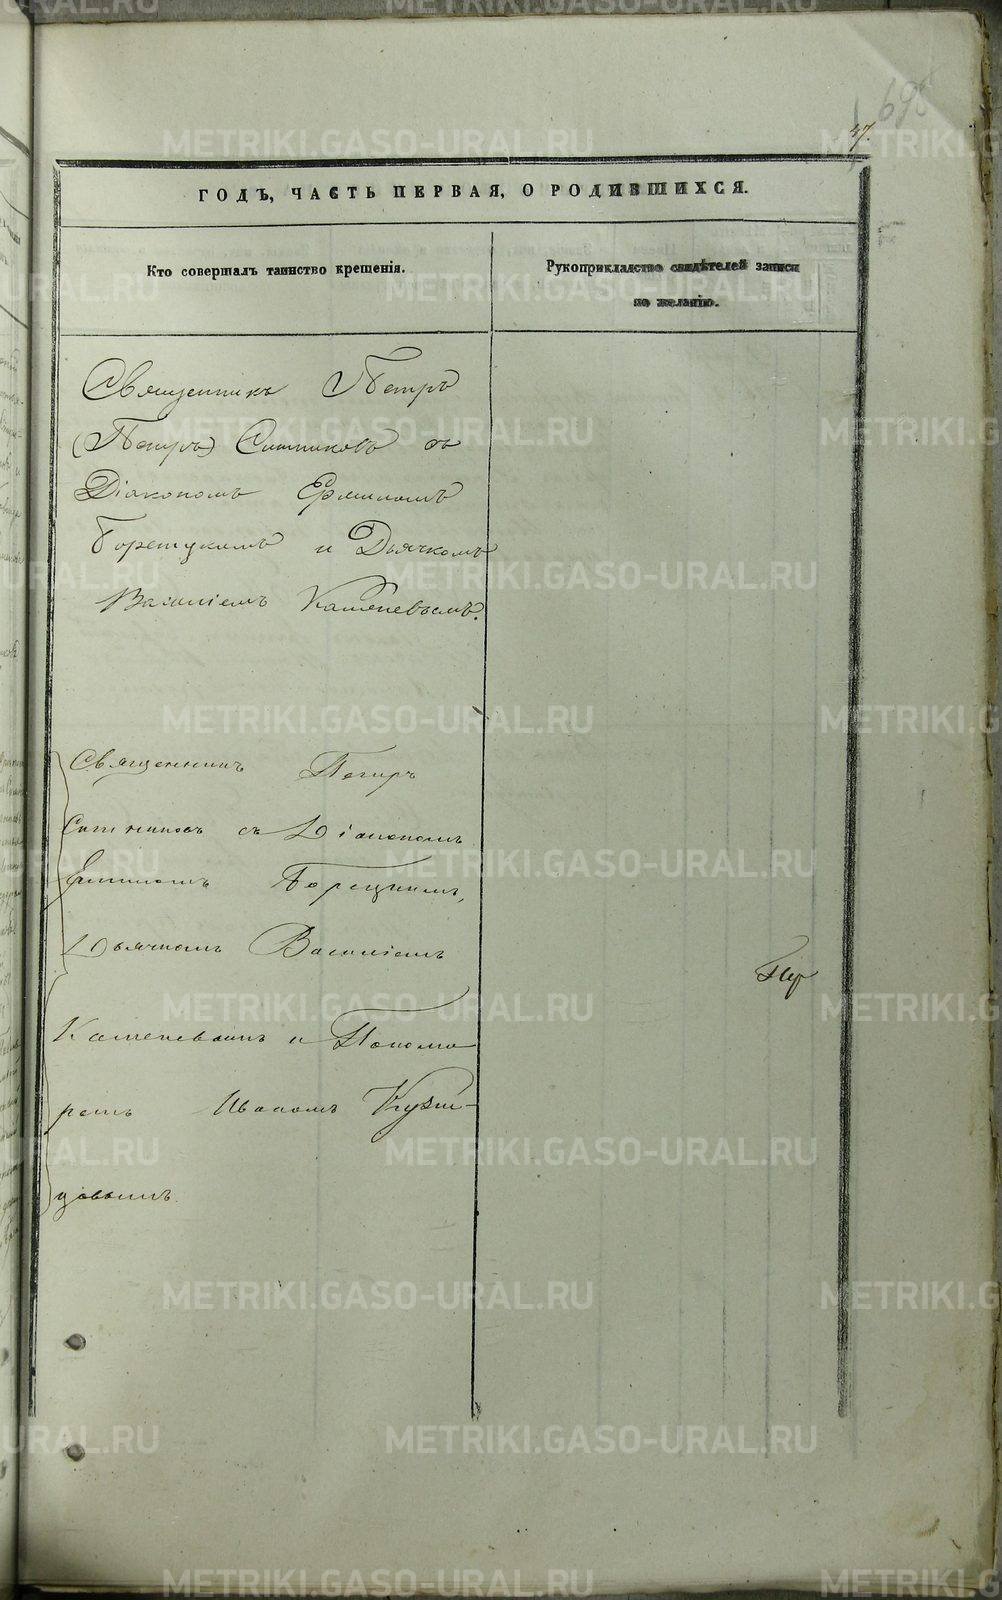 698
47.
ГОДЪ, ЧАСТЬ ПЕРВАЯ, О РОДИВШИХСЯ.
Кто совершалъ таинство крещенія.
Рукоприкладство свидѣтелей записи
по желанію.
Священникъ Петръ
(Петръ) Ситниковъ съ
Діакономъ Ермиломъ
Борецкимъ и Дьячкомъ
Василіемъ Каменевымъ.
Священникъ Петръ
Ситниковъ съ Діакономъ
Ермиломъ Борецкимъ,
Дьячкомъ Василіемъ
Каменевымъ и Понома
ремъ Иваномъ Кузне-
цовымъ
METRIKI.GASO-URAL.RU